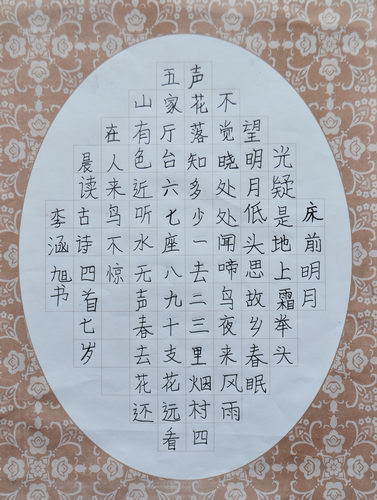 床前明月
光疑是地上霜举头
望明月低头思故乡春眠
不觉晓处处闻啼鸟夜来风雨
声花落知多少一去二三里烟村四
五家厅台六七座八九十支花远看
山有色近听水无声春去花还
在人来鸟不惊
晨读古诗四首七岁
李涵旭书